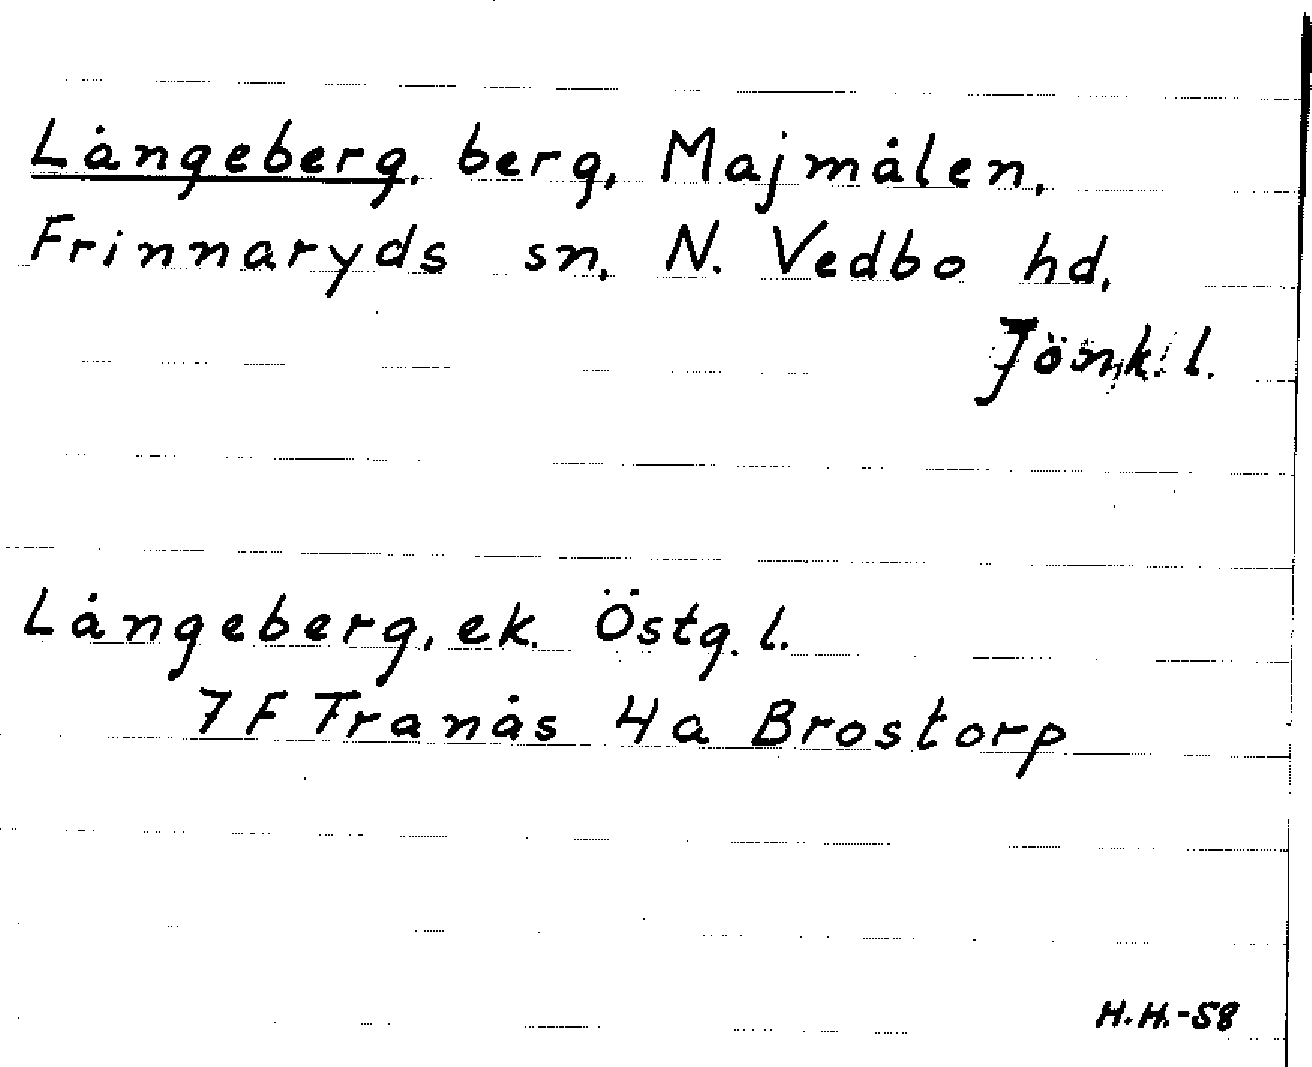 Långeberg, berg, Majmålen,
Frinnaryds sn, N. Vedbo hd,
Jönk. l.
Långeberg, ek. Östg. l.
7F Tranås 4a Brostorp
H.H.-58